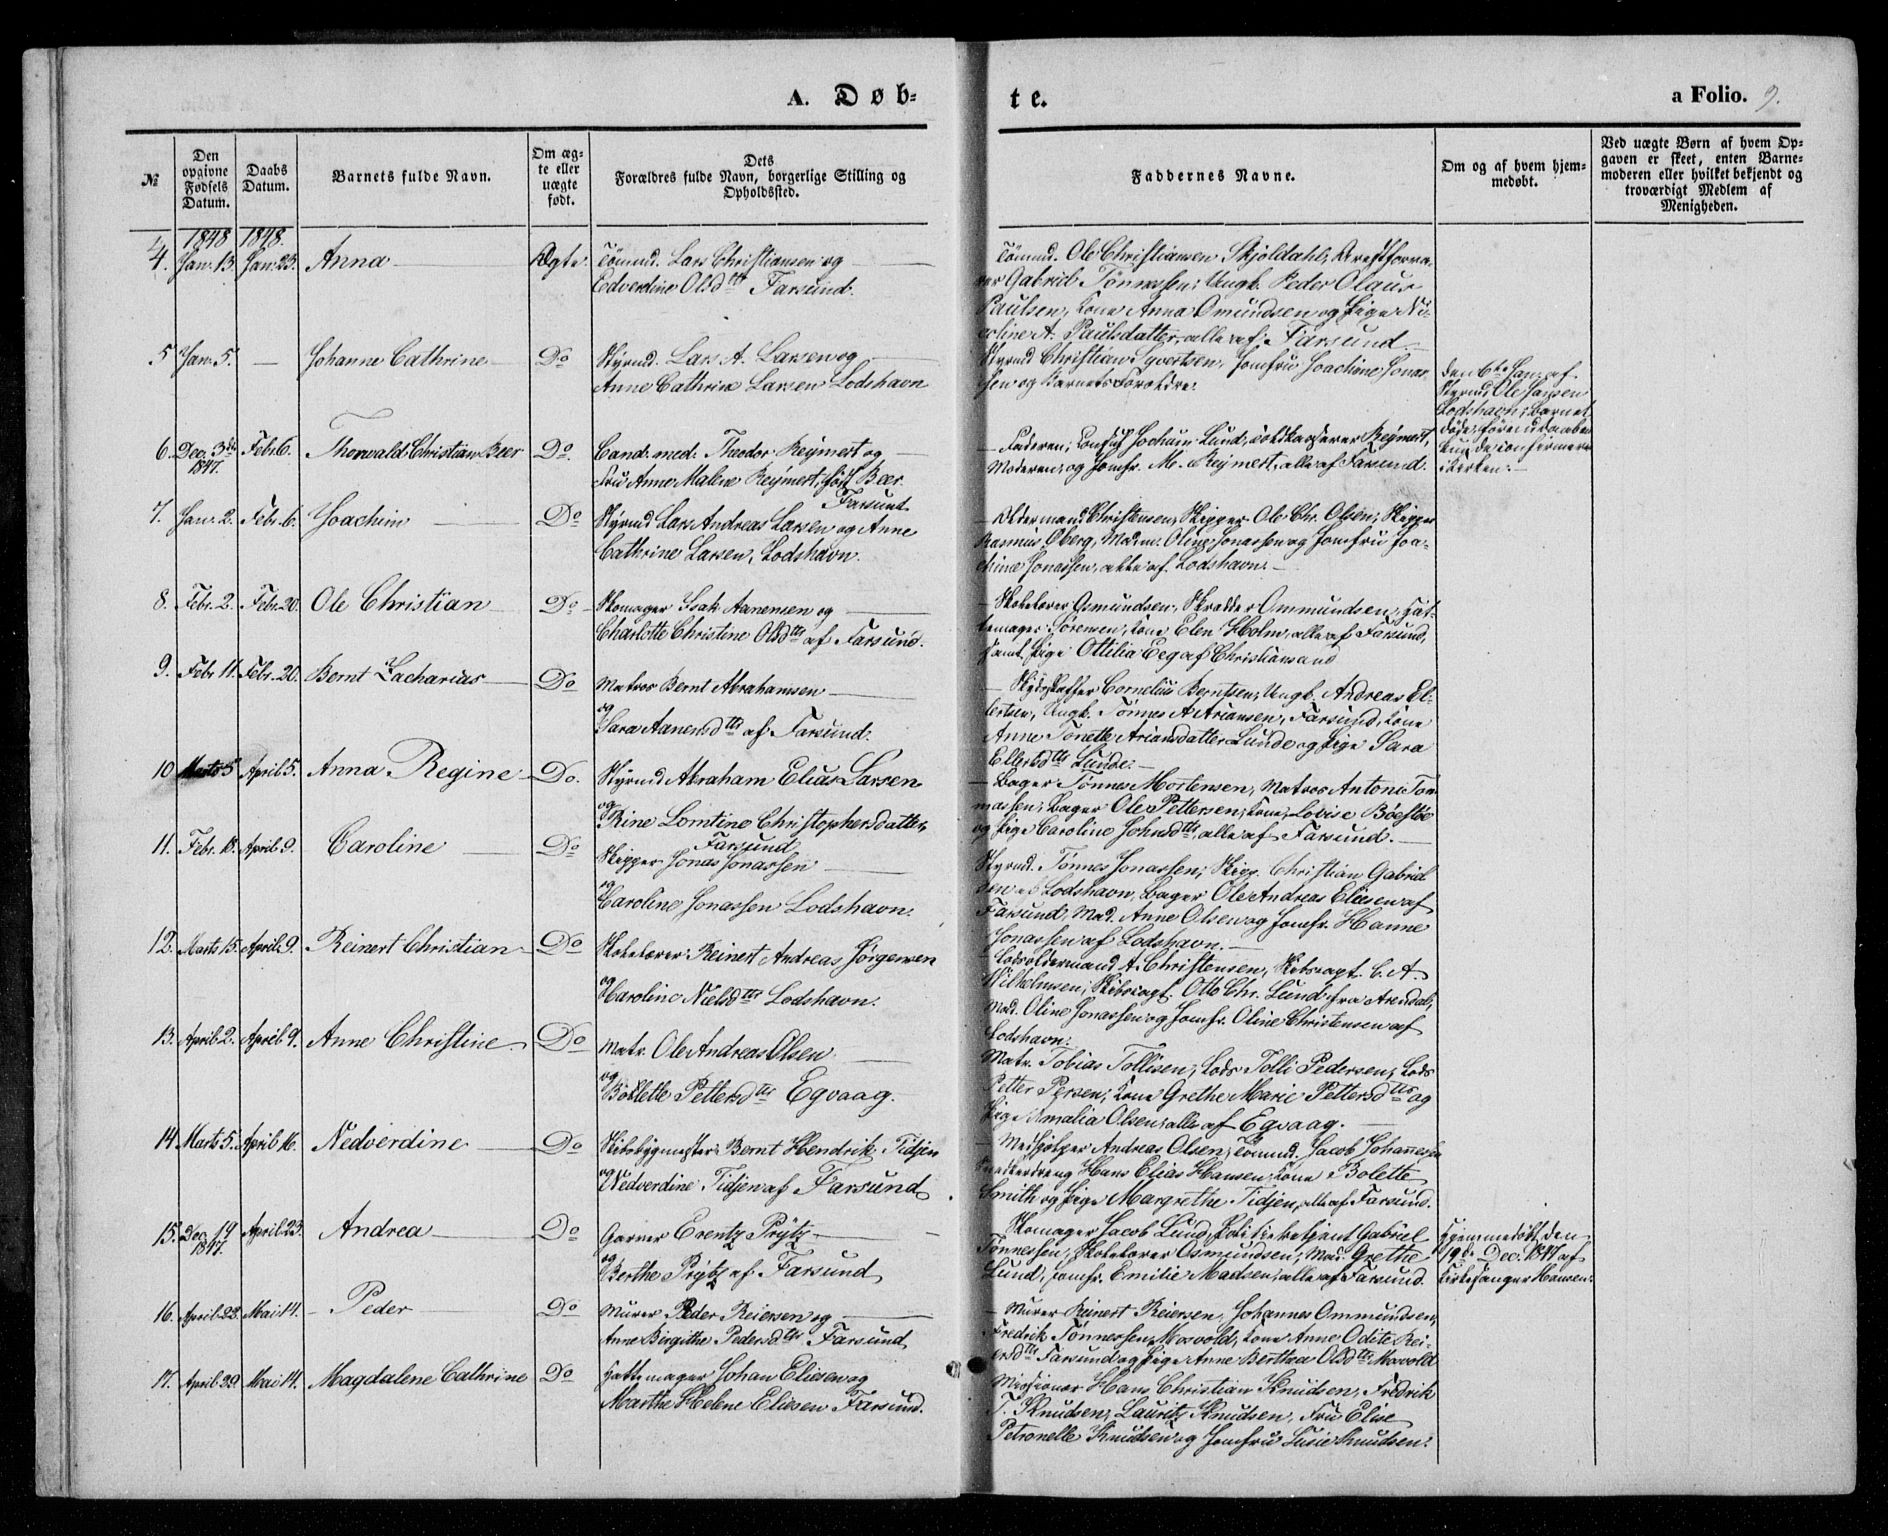 A. Døb-
te.
a Folio. 9.
№
Den opgivne Fødsels Datum.
Daabs Datum.
Barnets fulde Navn.
Om ægte eller uægte født.
Dets Forældres fulde Navn, borgerlige Stilling og Opholdssted.
Faddernes Navne.
Om og af hvem hjemmedøbt.
Ved uægte Børn af hvem Opgaven er skeet, enten Barnemoderen eller hvilket bekjendt og troværdigt Medlem af Menigheden.
1848 1848.
4. Jan. 13. Jan. 23. Anna Ægte. Tømmd. Lars Christiansen og
Edverdine Olsdtr Farsund.
Tømmd. Ole Christiansen Skjoldahl, Arrestforva-
rer Gabriel Tønnessen; Ungk. Peder Olaus
Paulsen, Kone Anna Omundsen og Pige Ni-
coline A. Paulsdatter, alle af Farsund.
5 Jan. 5. — Johanne Cathrine Do Styrmd. Lars A. Larsen og
Anne Cathrine Larsen Lodshavn
Styrmd Christian Syvertsen, Jomfru Joachine Jonas-
sen og Barnets Forældre.
den 6te Jan. af
Styrmd Ole Hansen
Lodshavn; Barnet
døde, førend Daaben
kunde confirmeres
i Kirken.
6. Dec. 3die 1847. Febr. 6. Thorvald Christian Beer Do. Cand. med. Theodor Reymert og
Fru Anne Malene Reymert, født Beer
Farsund
Faderen, Jochum Lund, Toldkasserer Reymert,
Moderen, og Jomfr. M. Reymert, alle af Farsund.
7. Jan. 2. Febr. 6. Joachim Do Styrmd Lars Andreas Larsen og Anne
Cathrine Larsen, Lodshavn.
Oldermand Christensen, Skipper Ole Chr. Olsen; Skipper
Rasmus Øberg, Madm. Oline Jonassen og Jomfru Joa-
chine Jonassen, alle af Lodshavn.
8. Febr. 2. Febr. 20. Ole Christian Do Skomager Isak Aanensen og
Charlotte Christine Olsdtr af Farsund.
Skolelærer Osmundsen, Skrædder Ommundsen, Hat-
temager Sørensen, Kone Elen Holm, alle af Farsund,
samt Pige Ottilia Eeg af Christiansand
9. Febr. 11. Febr. 20. Bernt Zacharias Do Matros Bernt Abrahamsen
og
Sara Aanensdtr af Farsund.
Skydsskaffer Cornelius Berntsen, Ungk. Andreas El-
lertsen, Ungk. Tønnes A. Ariansen, Farsund, Kone
Anne Tonette Ariansdatter Lunde og Pige Sara
Ellersdtr Lunde.
10 Marts 5 April 5. Anna Regine Do. Styrmd Abraham Elias Larsen
og
Trine Lomtine Christophersdatter
Farsund
Bager Tønnes Mortensen, Matros Antoni Tøn-
nassen, Bager Ole Pettersen, Kone Lovise Bøestøe
og Pige Caroline Johnsdtr, alle af Farsund.
11. Febr. 18. April 9. Caroline Do Skipper Jonas Jonassen
og
Caroline Jonassen Lodshavn.
Styrmd. Tønnes Jonassen, Skipp. Christian Gabriel-
sen af Lodshavn, Bager Ole Andreas Eliesen af
Farsund, Mad. Anne Olsen og Jomfr. Hanne
Jonassen af Lodshavn.
12. Marts 15. April 9. Reinert Christian Do Skolelærer Reinert Andreas Jørgensen
og
Karoline Nielsdtr Lodshavn.
Lodsoldermand A. Christensen, Skibscapt. C. A.
Wilhelmsen; Skibscapt. Otto Chr. Lund fra Arendal,
Mad. Oline Jonassen og Jomfr. Oline Christensen af
Lodshavn.
13. April 2. April 9. Anne Christine Do Matr. Ole Andreas Olsen
og
Bollette Pettersdtr Egvaag.
Matr. Tobias Tollisen, Lods Tolli Pedersen, Lods
Petter Persen; Kone Grethe Marie Pettersdtr og
Pige Amalia Olsen, alle af Egvaag.
14 Marts 5. April 16. Nedverdine Do Skibsbygmester Bernt Hendrik Tidjen
og
Nedverdine Tidjen af Farsund
Medhjelper Andreas Olsen, Tømmd. Jacob Johannesen
Snedkerdreng Hans Elias Hansen, Kone Bolette
Smith og Pige Margrethe Tidjen, alle af Farsund.
15. Dec. 14 1847. April 23. Andrea Do Garver Erentz Prÿtz
og
Berthe Prÿtz af Farsund
Skomager Jacob Lund, Politibetjent Gabriel
Tønnessen, Skolelærer Osmundsen, Mad. Grethe
Lund, Jomfr. Emilie Madsen, alle af Farsund.
Hjemmedøbt den
19de Dec. 1847 af
Kirkesanger Hansen.
16. April 23. Mai 14. Peder Do Murer Peder Reiersen og
Anne Birgithe Pedersdtr Farsund
Murer Reinert Reiersen, Johannes Ommundsen,
Fredrik Tønnessen Mosvold, Kone Anne Odite Rei-
ersdtr Farsund og Pige Anne Berthea Olsdtr Mosvold
17. April 29. Mai 14. Magdalene Cathrine Do Hattemager Johan Eliesen og
Marthe Helene Eliesen Farsund.
Missionær Hans Christian Knudsen, Fredrik
T. Knudsen, Lauritz Knudsen, Fru Elise
Petronelle Knudsen og Jomfru Susie Knudsen.